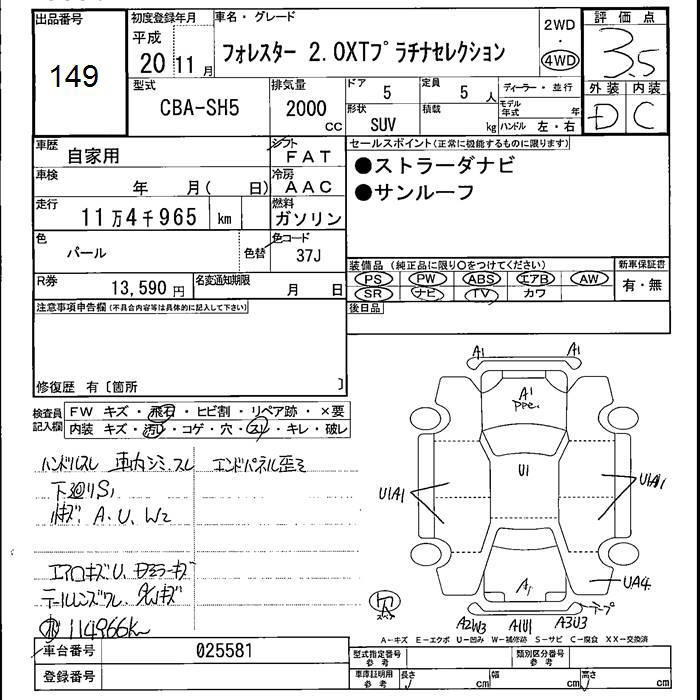 出品番号
149
初度登録年月
平成
20 11 月
車名・グレード
フォレスター 2.0XTプラチナセレクション
2WD
・
4WD
評価点
3.5
型式
CBA-SH5
排気量
2000
cc
ドア
5
定員
5 人
形状
SUV
積載
kg
ディーラー・並行
モデル年式
年
ハンドル 左・右
外装 内装
D C
車歴
自家用
シフト
FAT
車検
年 月( 日)
冷房
AAC
走行
11万4千965 km
燃料
ガソリン
色
パール
色替
色コード
37J
R券
13,590 円
名変通知期限
月 日
セールスポイント(正常に機能するものに限ります)
●ストラーダナビ
●サンルーフ
装備品(純正品に限り○をつけてください)
新車保証書
PS PW ABS エアB AW
SR ナビ TV カワ
有・無
後日品
注意事項申告欄(不具合内容等は具体的に記入して下さい)
修復歴 有〔箇所 〕
検査員記入欄
FW キズ・飛石・ヒビ割・リペア跡・×要
内装 キズ・汚レ・コゲ・穴・スレ・キレ・破レ
ハンドルスレ 車内シミ、スレ エンドパネル歪ミ
下廻りS1
小キズ A、U、W2
エアロキズU、
114966km
A1 A1
A1
U1
U1A1
U1A1
A1
UA4
テープ
A2W3 A1U1 A3U3
A-キズ E-エクボ U-凹み W-補修跡 S-サビ C-腐食 XX-交換済
車台番号
025581
登録番号
型式指定番号
参考
類別区分番号
参考
車庫証明用
参考
長さ
cm
幅
cm
高さ
cm